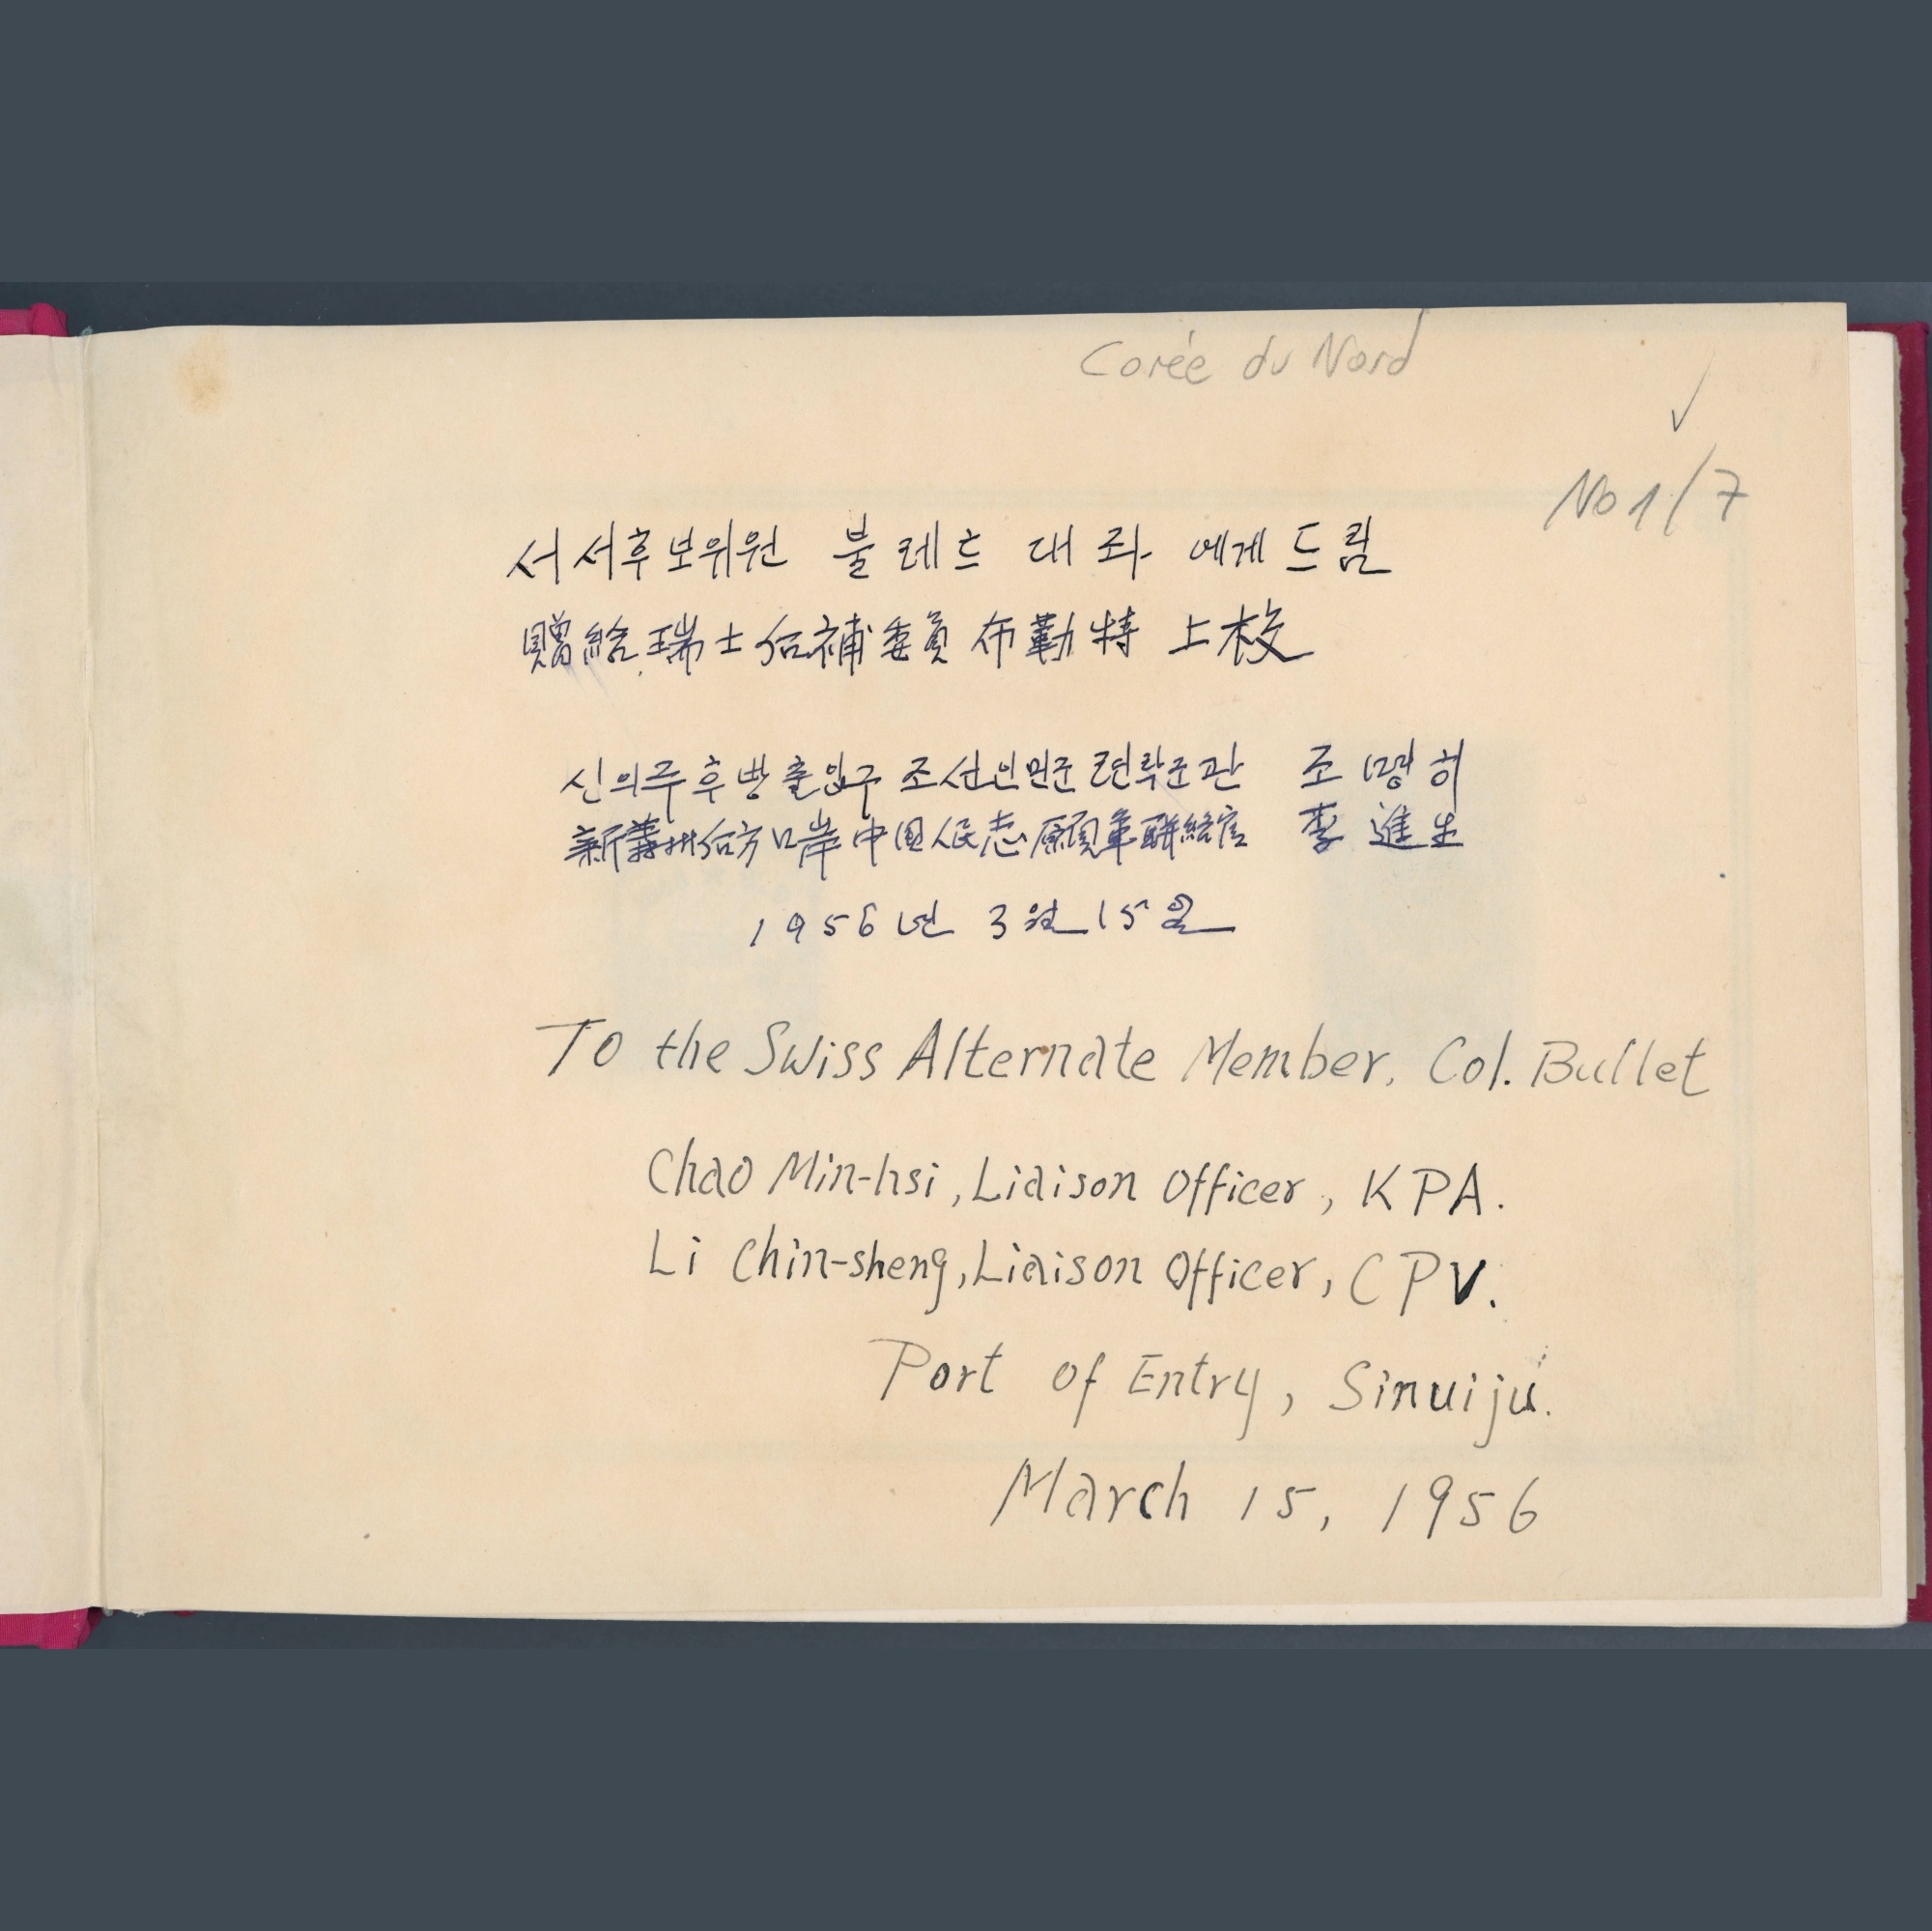 Corée du Nord
No 1/7
서서후보위원 불레트 대좌 에게드림
贈給瑞士后補委員布勒特上校
신의주후방출입구 조선인민군 련락군관 조명히
新義州后方口岸中国人民志願軍聯絡官 李進生
1956년 3월 15일
To the Swiss Alternate Member, Col. Bullet
Chao Min-hsi, Liaison Officer, KPA.
Li Chin-sheng, Liaison Officer, CPV.
Port of Entry, Sinuiju.
March 15, 1956